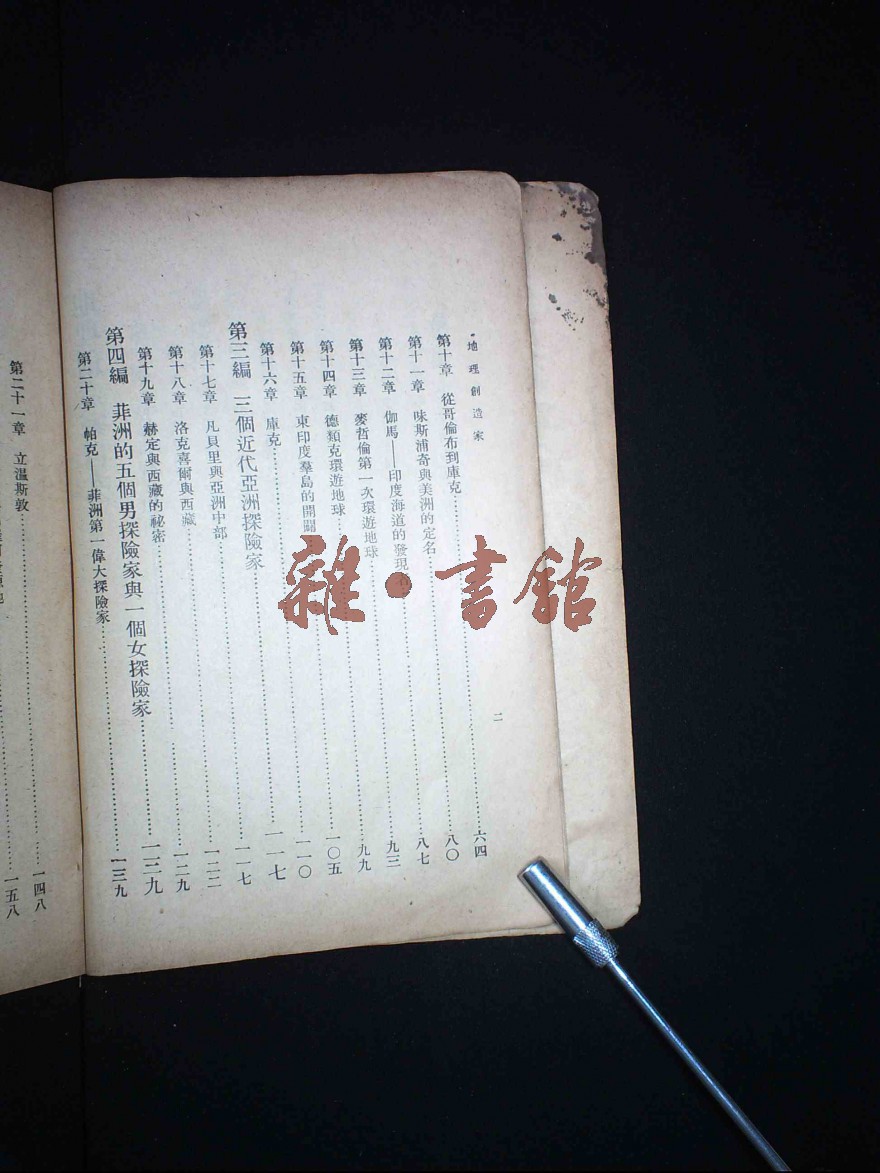 地理創造家
二
第十章 從哥倫布到庫克……六四
第十一章 味斯浦奇與美洲的定名……八〇
第十二章 伽馬——印度海道的發現者……八七
第十三章 麥哲倫第一次環遊地球……九三
第十四章 德類克環遊地球……九九
第十五章 東印度羣島的開闢……一〇五
第十六章 庫克……一一〇
第三編 三個近代亞洲探險家……一一七
第十七章 凡貝里與亞洲中部……一一七
第十八章 洛克喜爾與西藏……一二二
第十九章 赫定與西藏的祕密……一二九
第四編 非洲的五個男探險家與一個女探險家……一三九
第二十章 帕克——非洲第一偉大探險家……一三九
第二十一章 立溫斯敦……一四八
一五八
雜·書館